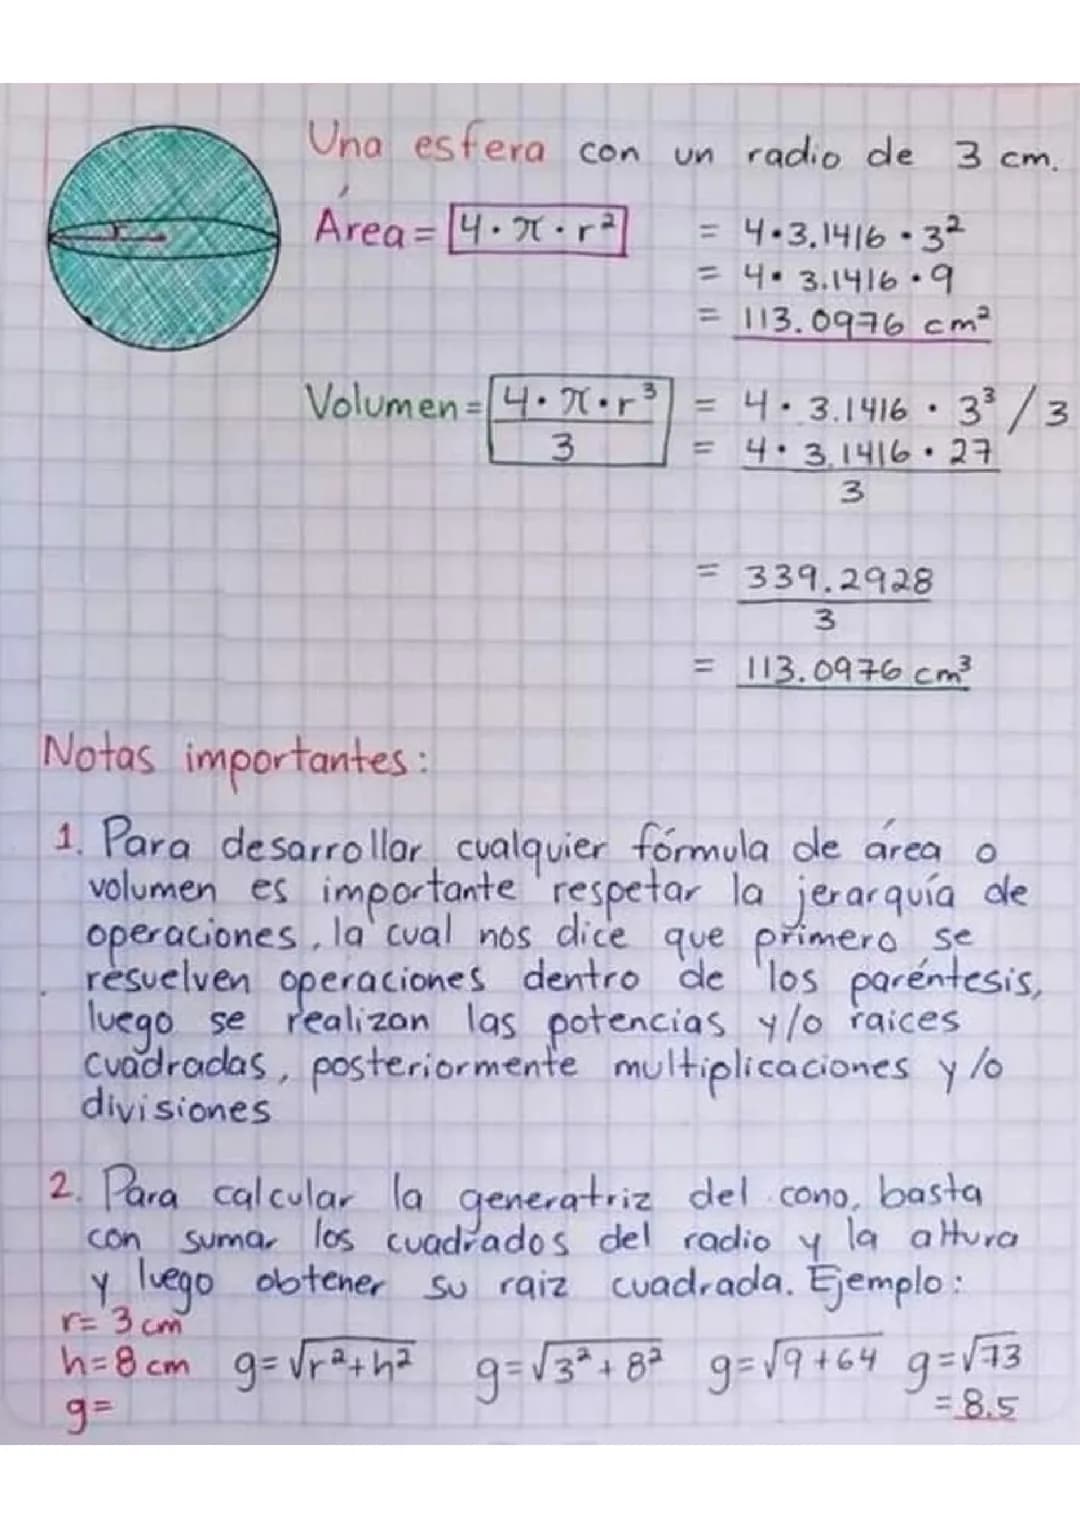 Una esfera con un radio de 3 cm.
Área = 4·π·r² = 4·3.1416·3²
= 4·3.1416·9
= 113.0976 cm²
Volumen = 4·π·r³ / 3 = 4·3.1416·3³/3
= 4·3.1416·27 / 3
= 339.2928 / 3
= 113.0976 cm³
r
Notas importantes:
1. Para desarrollar cualquier fórmula de área o
volumen es importante respetar la jerarquía de
operaciones, la cual nos dice que primero se
resuelven operaciones dentro de los paréntesis,
luego se realizan las potencias y/o raices
cuadradas, posteriormente multiplicaciones y/o
divisiones
2. Para calcular la generatriz del cono, basta
con sumar los cuadrados del radio y la altura
y luego obtener su raiz cuadrada. Ejemplo:
r= 3 cm
h=8 cm g=√r²+h² g=√3²+8² g=√9+64 g=√73
g= =8.5